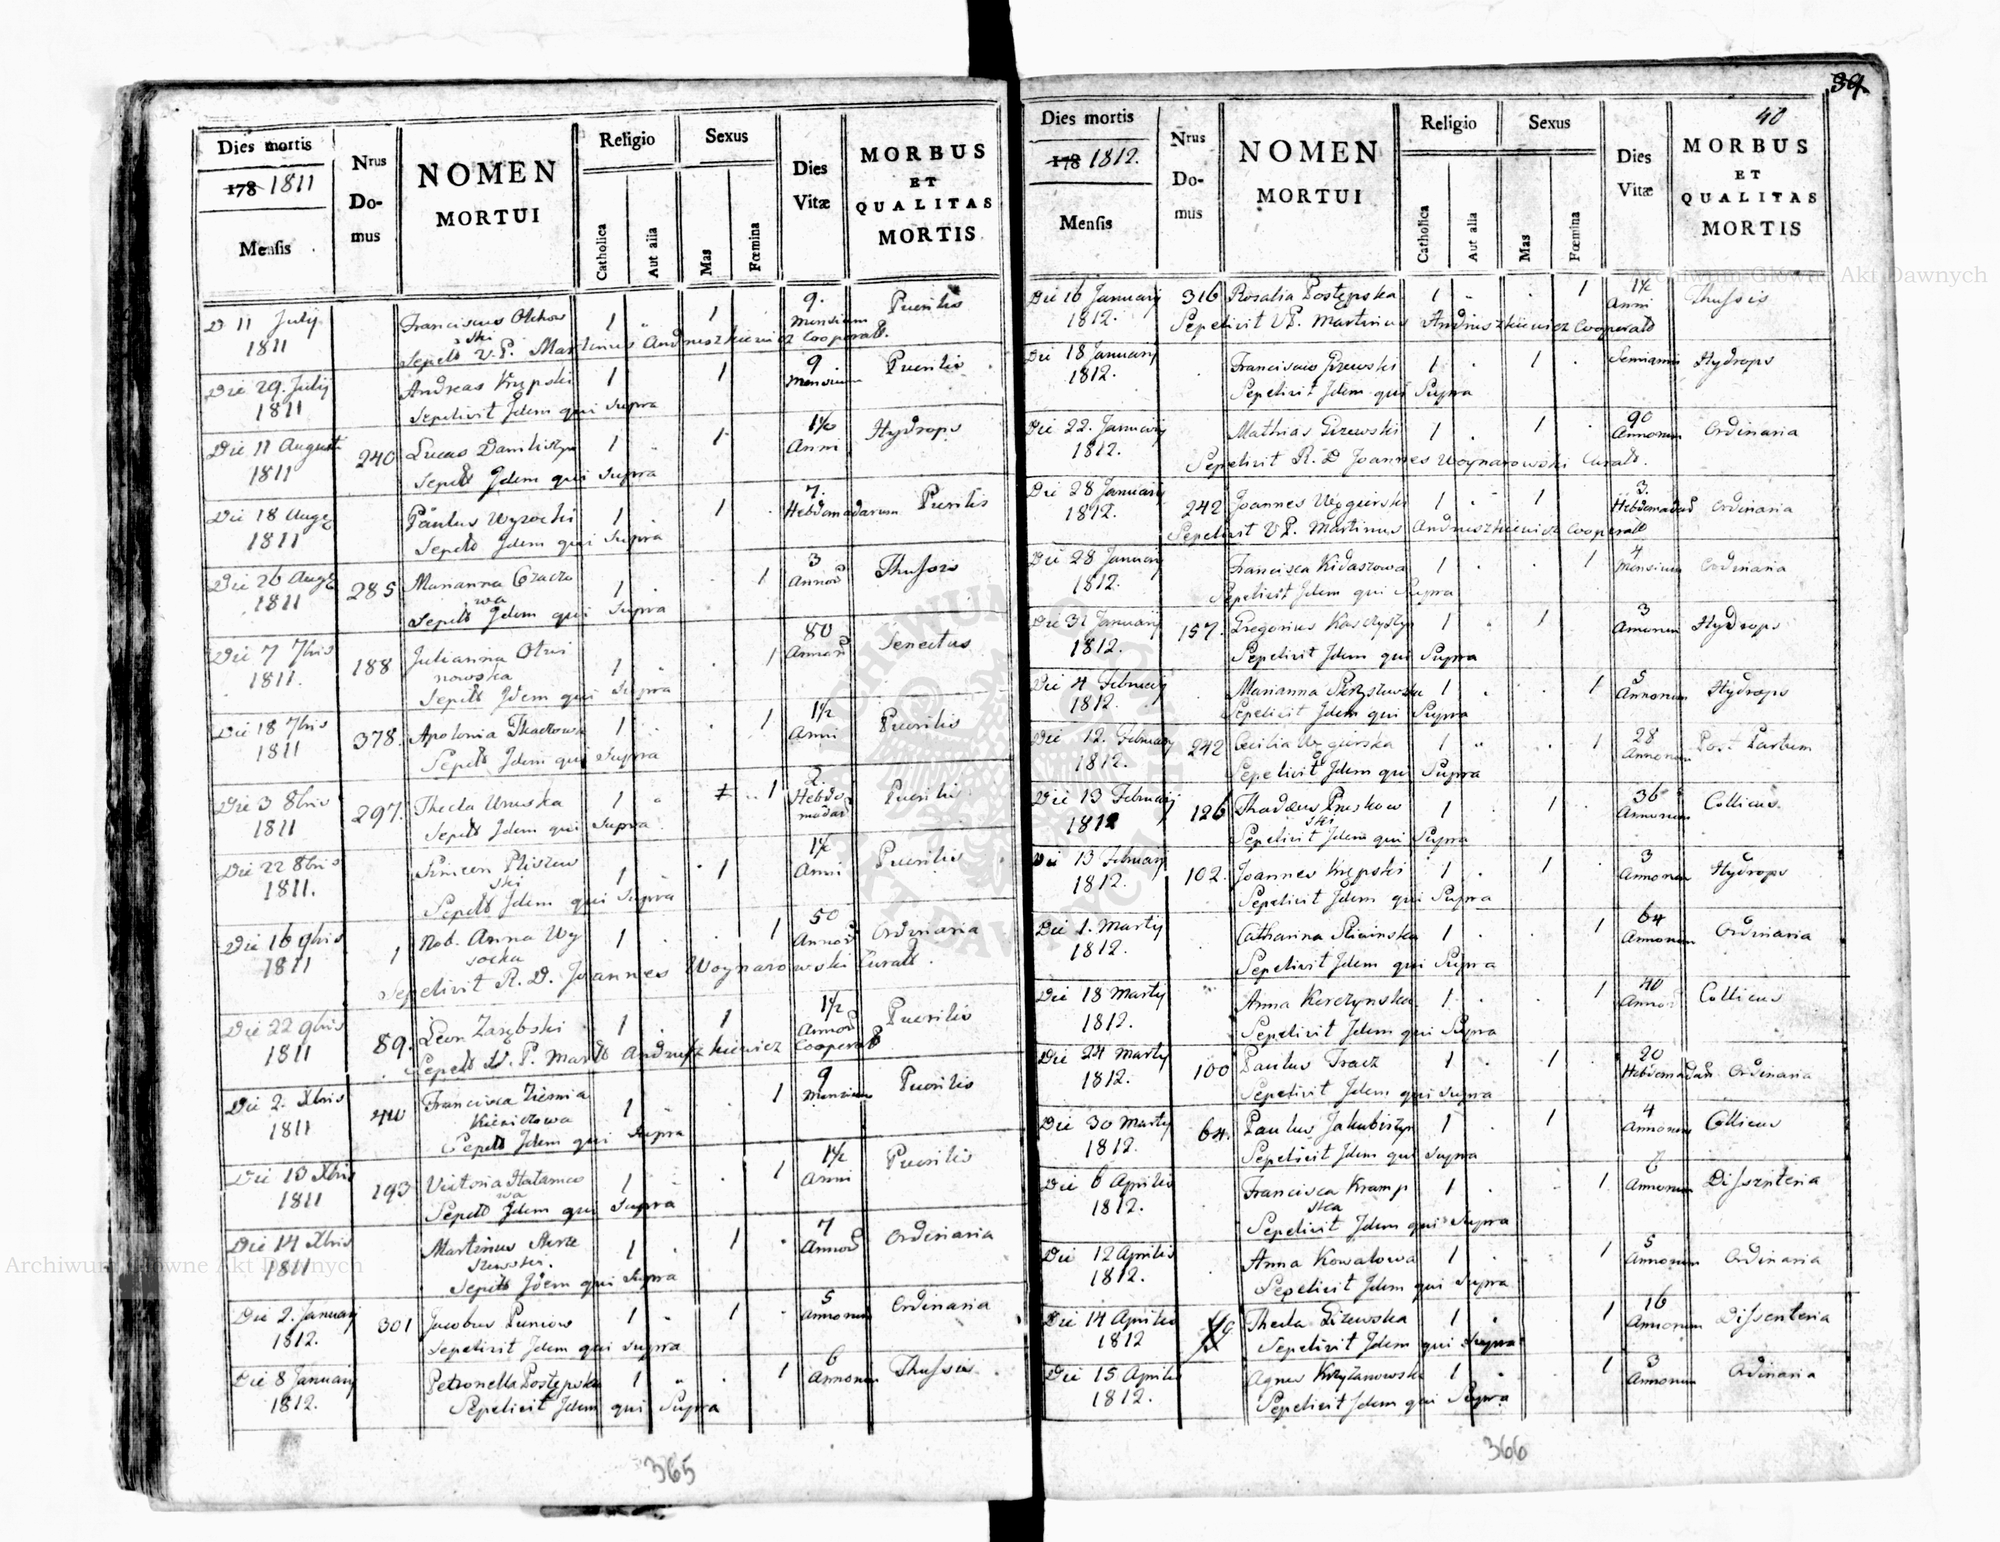 Dies mortis
178 1811
Mensis
Nrus
Do-
mus
NOMEN
MORTUI
Religio
Catholica
Aut alia
Sexus
Mas
Fœmina
Dies
Vitæ
MORBUS
ET
QUALITAS
MORTIS
D 11 July 1811 Franciscus Olchow 1 1 9. Mensium Puerilis
ski
Sepelt V. P. Martinus Andruszkiewicz Cooperatt.
Die 29. July 1811 Andreas Krępski 1 1 9 Mensium Puerilis
Sepelivit Jdem qui Supra
Die 11 Augusti 1811 240 Lucas Daniliszyn 1 1 1½ Anni Hydrops
Sepelt Jdem qui Supra
Die 18 Aug 1811 Paulus Wysocki 1 1 7. Hebdomadarum Puerilis
Sepelt Jdem qui Supra
Die 26 Aug 1811 285 Marianna 1 1 3 Annor Thussis
wa
Sepelt Jdem qui Supra
Die 7 7bris 1811. 188 Julianna 1 1 80 Annor Senectus
nowska
Sepelt Jdem qui Supra
Die 18 7bris 1811 378. Apolonia Tkaczowa 1 1 1½ Anni Puerilis
Sepelt Jdem qui Supra
Die 3 8bris 1811 297. Thecla Uruska 1 1 2. Hebdo
madar Puerilis
Sepelt Jdem qui Supra
Die 22 8bris 1811. Simeon Pliszew 1 1 1½ Anni Puerilis
ski
Sepelt Jdem qui Supra
Die 16 9bris 1811 1 Nob. Anna Wy 1 1 50 Annor Ordinaria
socka
Sepelivit R. D. Joannes Woynarowski Curatt.
Die 22 9bris 1811 89. Leon Zarębski 1 1 1½ Annor Puerilis
Sepelt V. P. Martt Andruszkiewicz Cooperatt
Die 2. Xbris 1811 Francisca Ziemia 1 1 9 Mensium Puerilis
kiewiczowa
Sepelt Jdem qui Supra
Die 13 Xbris 1811 193 Victoria Hatamao 1 1 1½ Anni Puerilis
wa
Sepelt Jdem qui Supra
Die 14 Xbris 1811 Martinus 1 1 7 Annor Ordinaria
Sepelt Jdem qui Supra
Die 2. January 1812. 301 Jacobus Puniow 1 1 5 Annorum Ordinaria
Sepelivit Jdem qui Supra
Die 8 January 1812. Petronella Postępska 1 1 6 Annorum Thussis
Sepelivit Jdem qui Supra
365
39.
40
Dies mortis
178 1812.
Mensis
Nrus
Do-
mus
NOMEN
MORTUI
Religio
Catholica
Aut alia
Sexus
Mas
Fœmina
Dies
Vitæ
MORBUS
ET
QUALITAS
MORTIS
Die 16 January 1812. 316 Rosalia Postępska 1 1 1½ Anni Thussis
Sepelivit V P. Martinus Andruszkiewicz Cooperatt
Die 18 January 1812. Franciscus Gizewski 1 1 Semianni Hydrops
Sepelivit Jdem qui Supra
Die 22. January 1812. Mathias Gizewski 1 1 90 Annorum Ordinaria
Sepelivit R. D Joannes Woynarowski Curatt.
Die 28 January 1812. 242 Joannes Węgierski 1 1 3. Hebdomadar Ordinaria
Sepelivit V P. Martinus Andruszkiewicz Cooperatt
Die 28 January 1812. Francisca Kidaszowa 1 1 4 Mensium Ordinaria
Sepelivit Jdem qui Supra
Die 31 January 1812. 157. Gregorius Kaszczyszyn 1 1 3 Annorum Hydrops
Sepelivit Jdem qui Supra
Die 4 February 1812. Marianna 1 1 5 Annorum Hydrops
Sepelivit Jdem qui Supra
Die 12. February 1812. 242 Cecilia Węgierska 1 1 28 Annorum Post Partum
Sepelivit Jdem qui Supra
Die 13 February 1812 126 Thadæus Pruskow 1 1 36 Annorum Collicus
ski
Sepelivit Jdem qui Supra
Die 13 February 1812. 102. Joannes Krępski 1 1 3 Annorum Hydrops
Sepelivit Jdem qui Supra
Die 1. Marty 1812. Catharina Sliwinska 1 1 64 Annorum Ordinaria
Sepelivit Jdem qui Supra
Die 18 Marty 1812. Anna Korczynska 1 1 40 Annor Collicus
Sepelivit Jdem qui Supra
Die 24 Marty 1812. 100 Paulus Tracz 1 1 20 Hebdomadar Ordinaria
Sepelivit Jdem qui Supra
Die 30 Marty 1812. 64. Paulus Jakubiszyn 1 1 4 Annorum Collicus
Sepelivit Jdem qui Supra
Die 6 Aprilis 1812. Francisca Kramp 1 1 6 Annorum Dissenteria
ska
Sepelivit Jdem qui Supra
Die 12 Aprilis 1812. Anna Kowalowa 1 1 5 Annorum Ordinaria
Sepelivit Jdem qui Supra
Die 14 Aprilis 1812 Thecla Gizewska 1 1 16 Annorum Dissenteria
Sepelivit Jdem qui Supra
Die 15 Aprilis 1812. Agnes Krzyzanowska 1 1 3 Annorum Ordinaria
Sepelivit Jdem qui Supra
366
Archiwum Główne Akt Dawnych
Archiwum Główne Akt Dawnych
ARCHIWUM GŁÓWNE AKT DAWNYCH